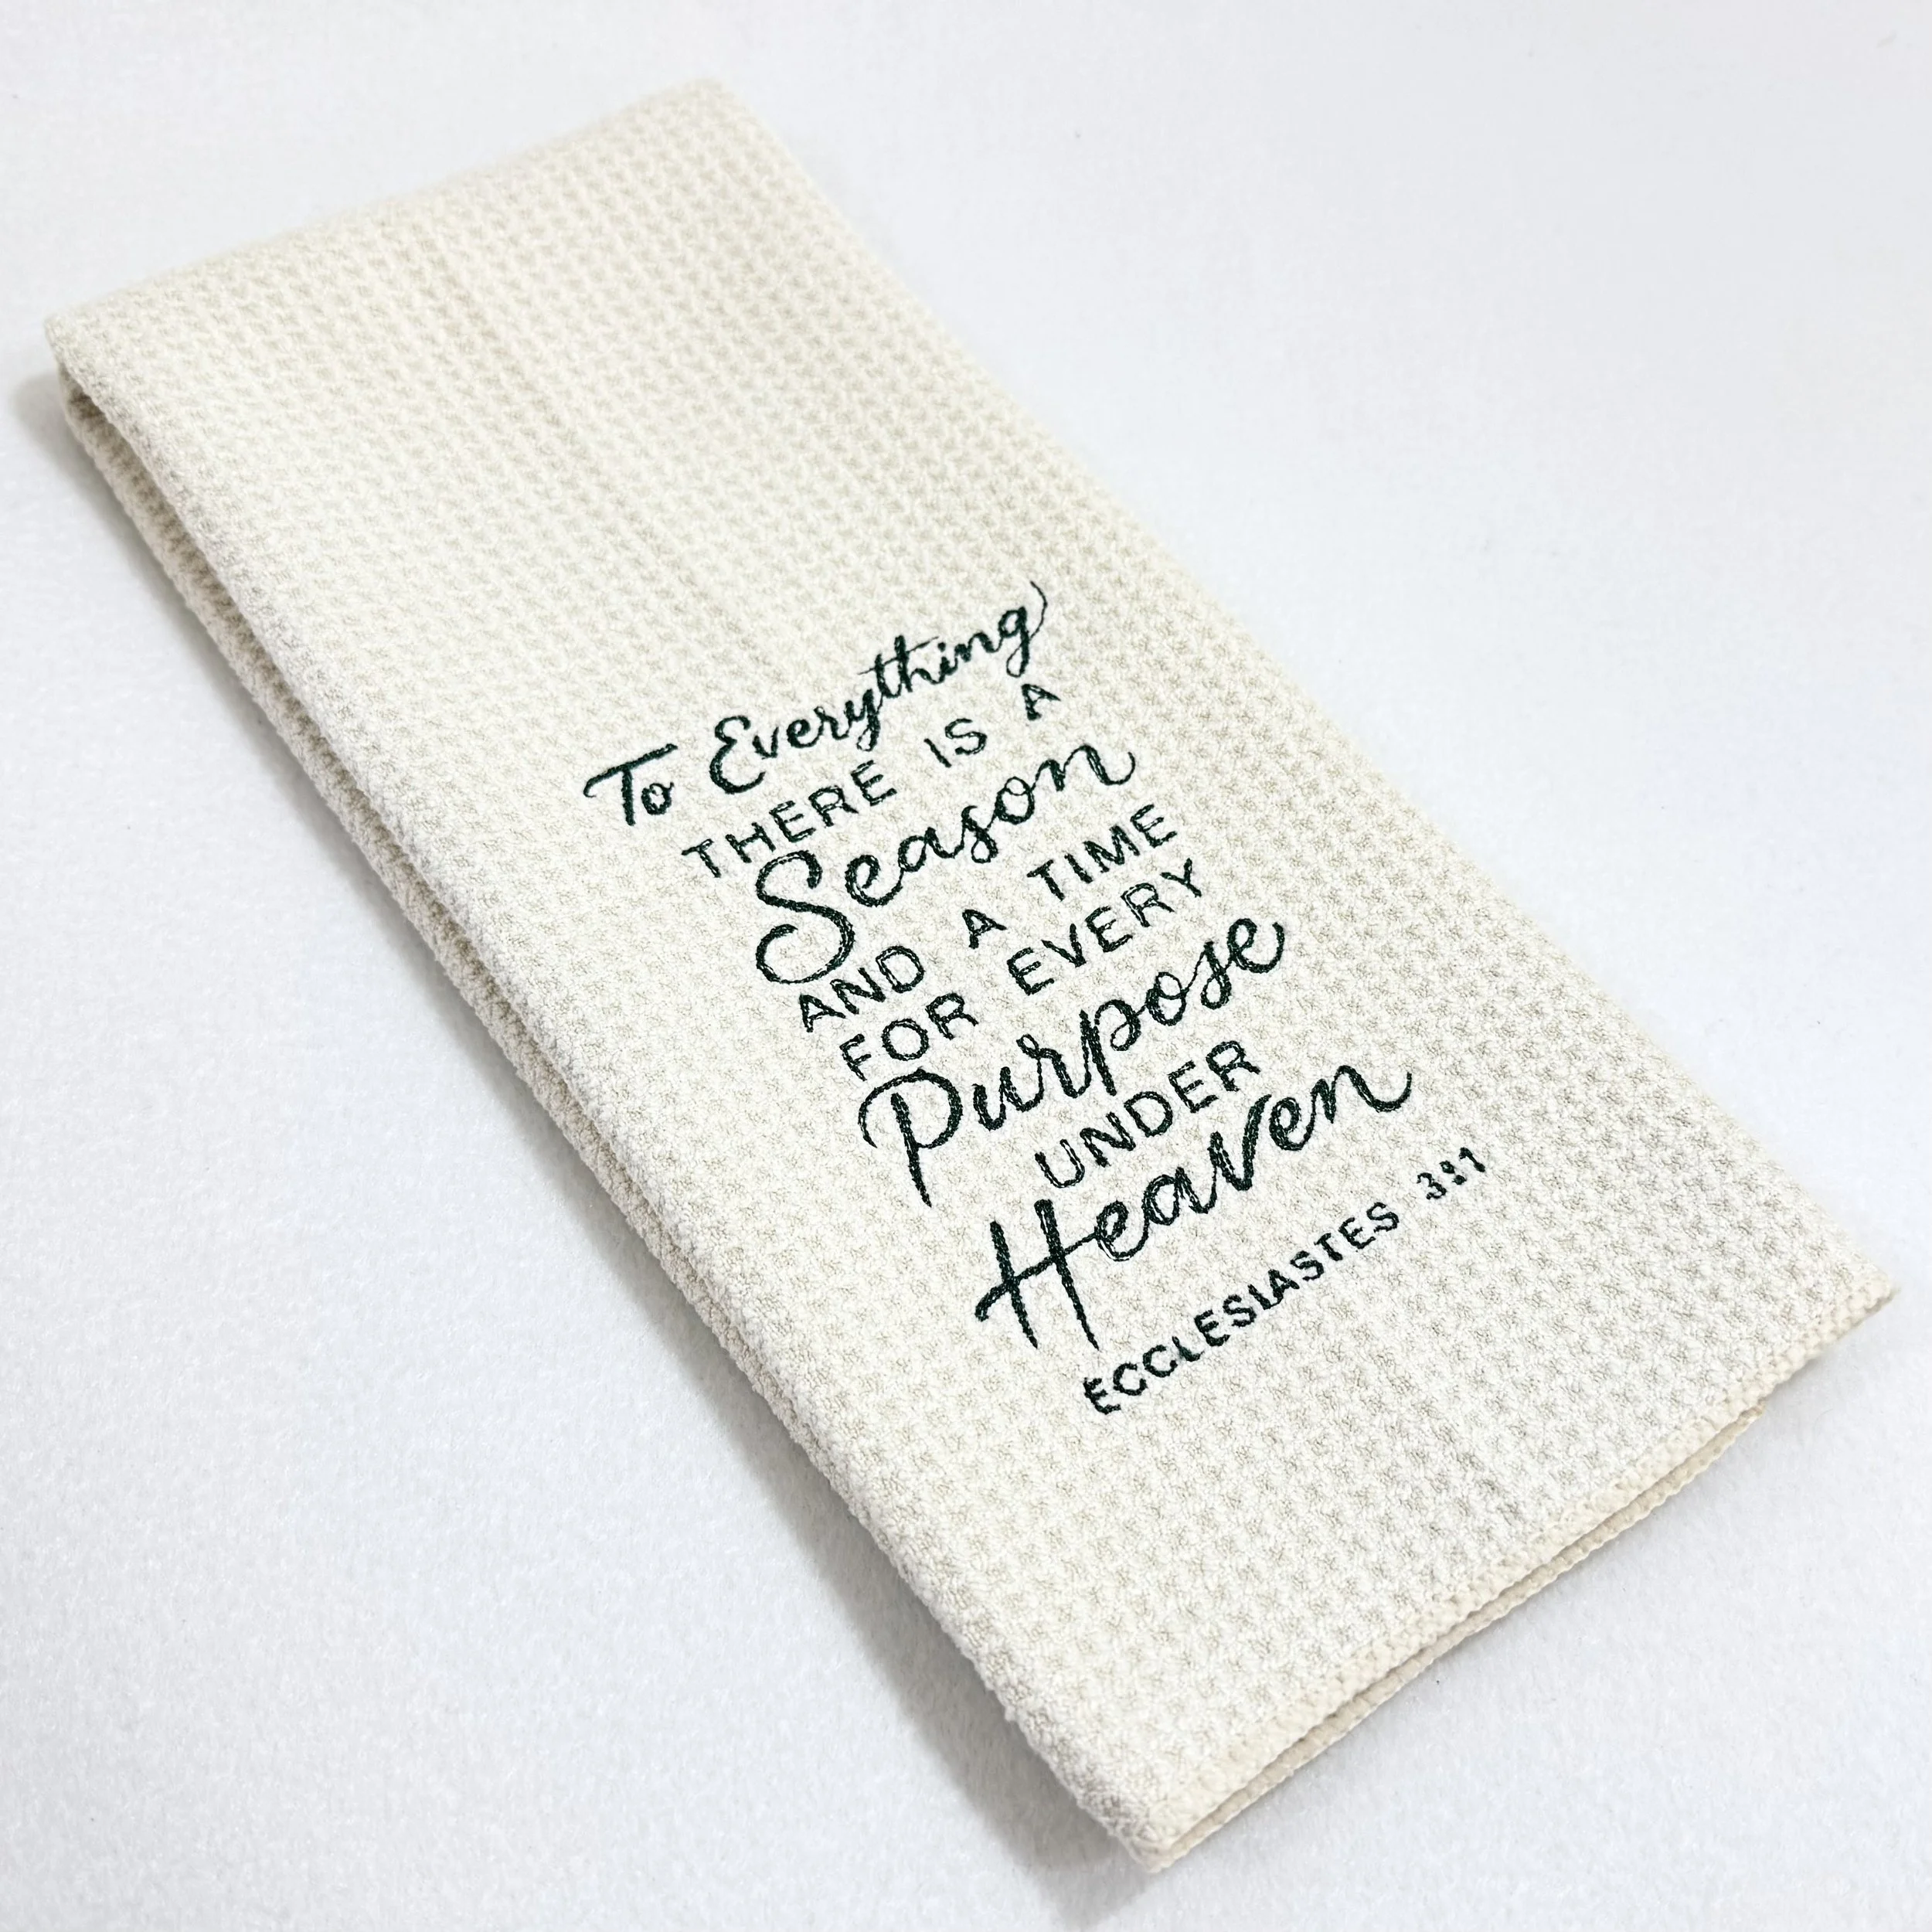 To Everything
THERE IS A
Season
AND A TIME
FOR EVERY
Purpose
UNDER
Heaven
ECCLESIASTES 3:1